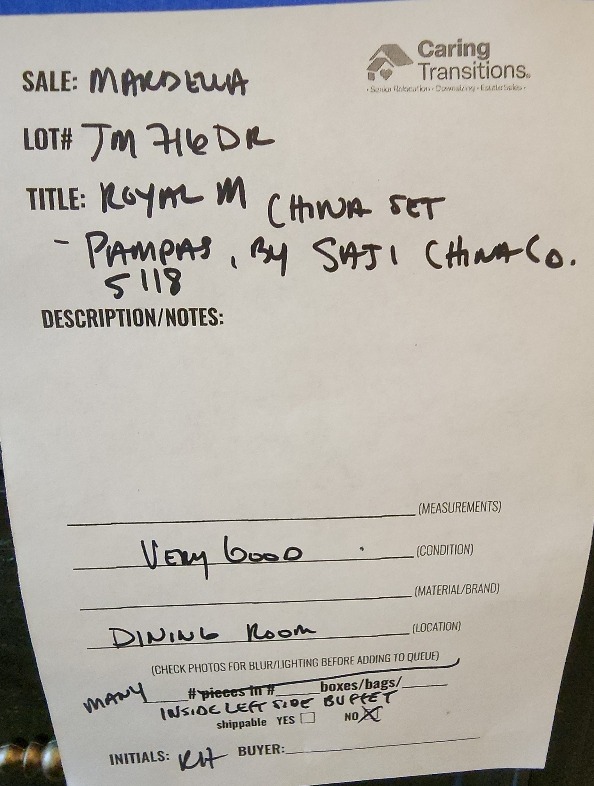 Caring
Transitions®
• Senior Relocation • Downsizing • Estate Sales •
SALE: MARDELLA
LOT# JM 716 DR
TITLE: ROYAL M CHINA SET
- PAMPAS, BY SAJI CHINA CO.
5118
DESCRIPTION/NOTES:
(MEASUREMENTS)
VERY GOOD (CONDITION)
(MATERIAL/BRAND)
DINING ROOM (LOCATION)
(CHECK PHOTOS FOR BLUR/LIGHTING BEFORE ADDING TO QUEUE)
MANY # pieces in # boxes/bags/
INSIDE LEFT SIDE BUFFET
shippable YES ☐ NO ☒
INITIALS: RH BUYER: